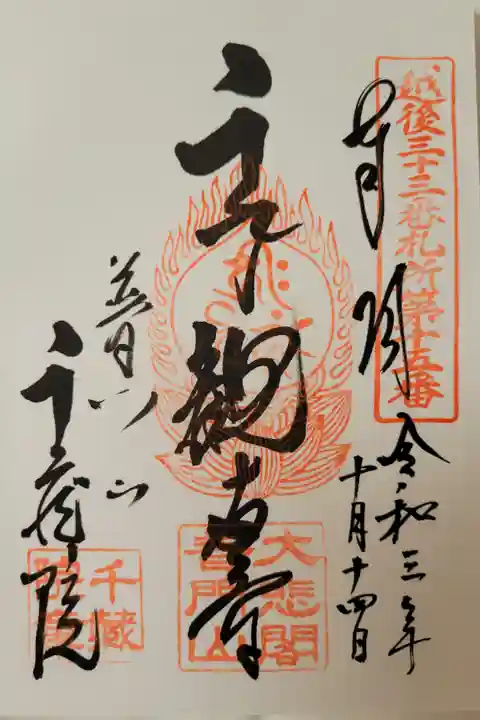 越後三十三番札所第十五番
奉拝
令和三年
十月十四日
聖観音
大悲閣
普門山
普門山
千蔵院
千蔵